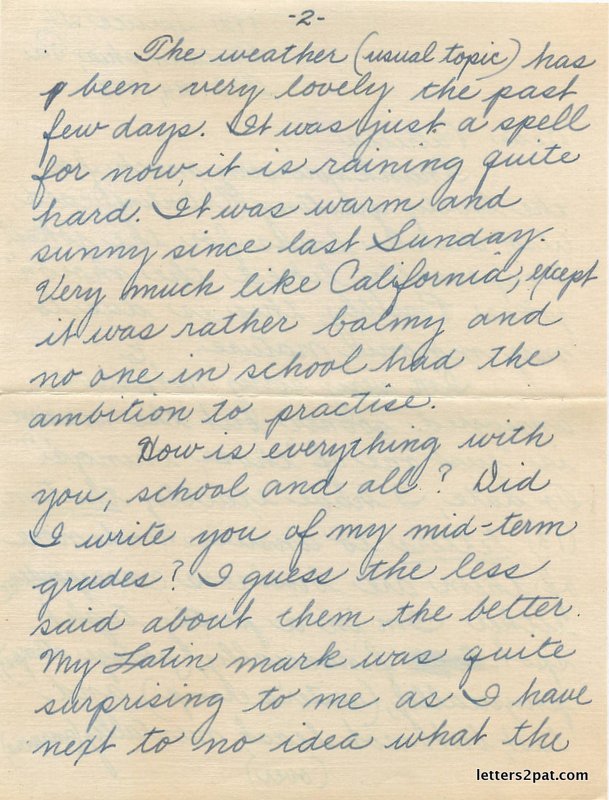 -2-
The weather (usual topic) has
been very lovely the past
few days. It was just a spell
for now it is raining quite
hard. It was warm and
sunny since last Sunday.
Very much like California, except
it was rather balmy and
no one in school had the
ambition to practise.
How is everything with
you, school and all? Did
I write you of my mid-term
grades? I guess the less
said about them the better.
My Latin mark was quite
surprising to me as I have
next to no idea what the
letters2pat.com